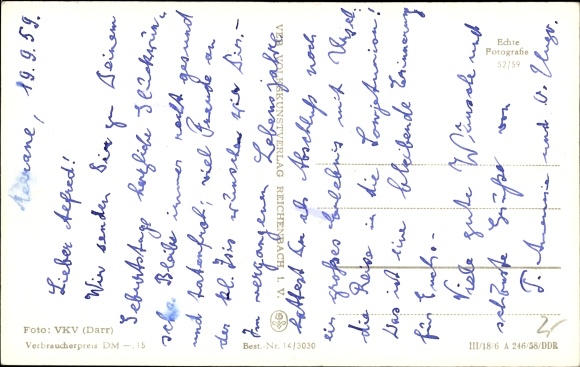 Meerane, 19.9.59.
Lieber Alfred!
Wir senden Dir zu Deinem
Geburtstage herzliche Glückwün-
sche. Bleibe immer recht gesund
und tatenfroh; viel Freude an
der kl. Iris wünschen wir Dir.-
Im vergangenen Lebensjahre
hattest Du als Abschluß noch
ein großes Erlebnis mit Ursel:
die Reise in die Sowjetunion!
Das ist eine bleibende Erinnerung
für Euch.-
Viele gute Wünsche und
schönste Grüße von
T. und O. Hugo.
VEB VOLKSKUNSTVERLAG REICHENBACH I. V.
Echte
Fotografie
52/59
Foto: VKV (Darr)
Verbraucherpreis DM —.15
Best.-Nr. 14/3030
III/18/6 A 246/58/DDR